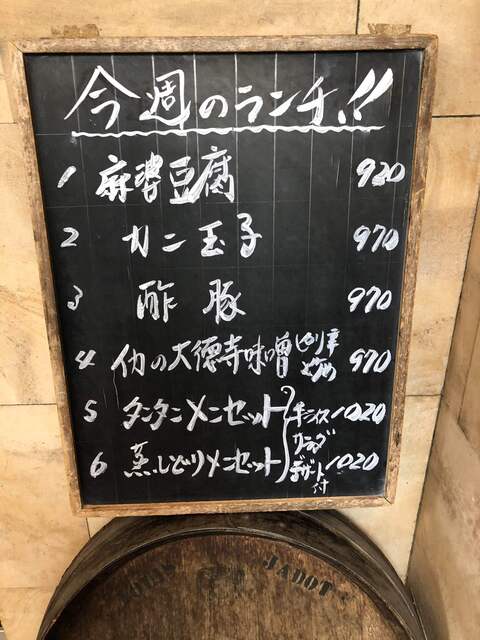 今週のランチ!!
1 麻婆豆腐 920
2 カニ玉子 970
3 酢豚 970
4 イカの大徳寺味噌 ピリ辛 970
5 タンタンメンセット 半ライス 1020
サラダ
6 蒸しどりメンセット デザート付 1020
LOUIS JADOT